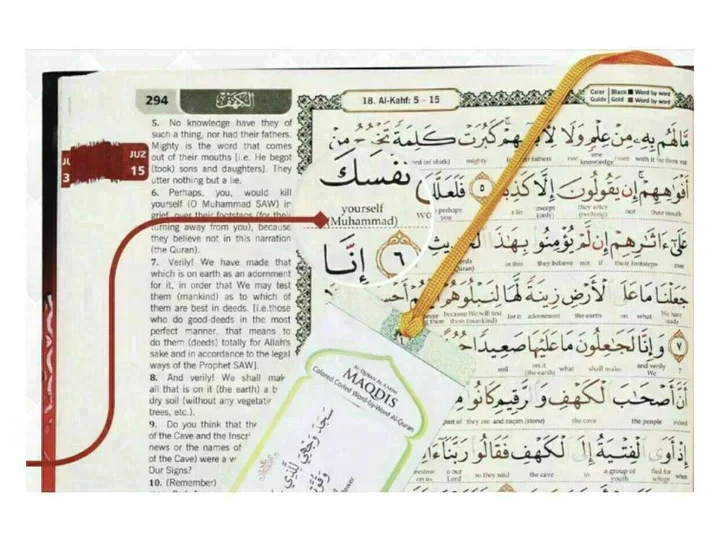 294
الكهف
18. Al-Kahf: 5 - 15
Color Guide
Black Word by word
Gold Word by word
JUZ
15
5. No knowledge have they of
such a thing, nor had their fathers.
Mighty is the word that comes
out of their mouths [i.e. He begot
(took) sons and daughters]. They
utter nothing but a lie.
6. Perhaps, you, would kill
yourself (O Muhammad SAW) in
grief, over their footsteps (for their
turning away from you), because
they believe not in this narration
(the Quran).
7. Verily! We have made that
which is on earth as an adornment
for it, in order that We may test
them (mankind) as to which of
them are best in deeds. [i.e.those
who do good deeds in the most
perfect manner, that means to
do them (deeds) totally for Allah's
sake and in accordance to the legal
ways of the Prophet SAW].
8. And verily! We shall mak
all that is on it (the earth) a b
dry soil (without any vegetatio
trees, etc.).
9. Do you think that the
of the Cave and the Inscri
news or the names of
of the Cave) were a w
Our Signs?
10. (Remember)
مَّا لَهُم بِهِۦ مِنْ عِلْمٍ وَلَا لِآبَائِهِمْ كَبُرَتْ كَلِمَةً تَخْرُجُ مِنْ
mighty their fathers knowledge
أَفْوَاهِهِمْ إِن يَقُولُونَ إِلَّا كَذِبًا ٥ فَلَعَلَّكَ
perhaps you a lie except (only) they utter (nothing) not their mouth
نَفْسَكَ
yourself
(Muhammad)
عَلَىٰٓ ءَاثَارِهِمْ إِن لَّمْ يُؤْمِنُوا بِهَٰذَا الْحَدِيثِ
in this they believe not if their footsteps over
٦ إِنَّا
جَعَلْنَا مَا عَلَى الْأَرْضِ زِينَةً لَّهَا لِنَبْلُوَهُمْ أَيُّهُمْ أَحْسَنُ
them (mankind) because We will test for it adornment the earth on what We have made
٧ وَإِنَّا لَجَاعِلُونَ مَا عَلَيْهَا صَعِيدًا
soil on it (the earth) what shall make and verily We 7
أَنَّ أَصْحَابَ الْكَهْفِ وَالرَّقِيمِ كَانُوا
they are and raqim (stone) the cave the people
إِذْ أَوَى الْفِتْيَةُ إِلَى الْكَهْفِ فَقَالُوا رَبَّنَا
our Lord so they said the cave to a group of youth fled for refuge when
MAQDIS
Colored Coded Word-by-Word Al-Quran